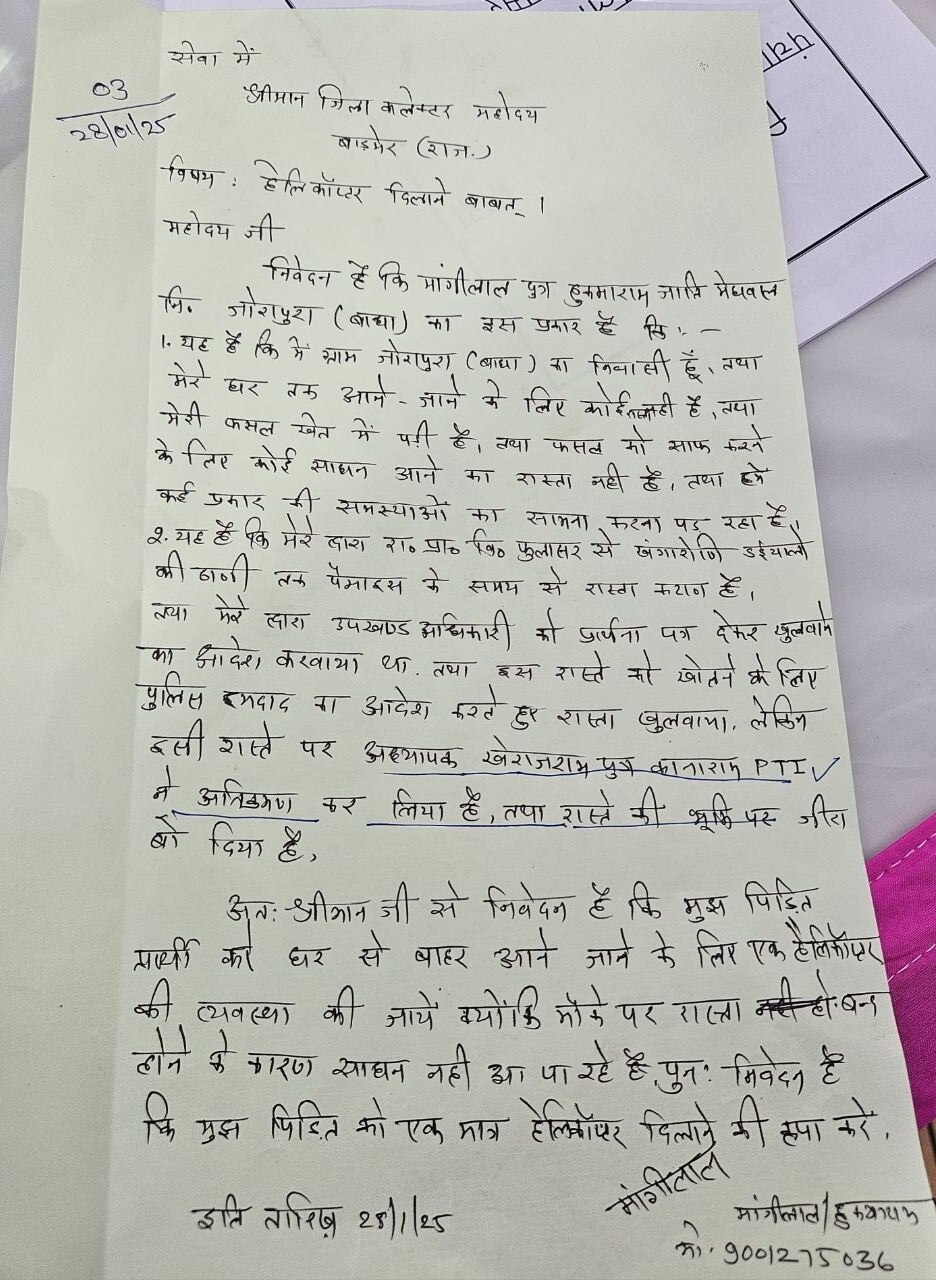 सेवा में
03
28/01/25
श्रीमान जिला कलेक्टर महोदय
बाड़मेर (राज.)
विषय : हेलिकॉप्टर दिलाने बाबत् ।
महोदय जी
निवेदन है कि मांगीलाल पुत्र हुकमाराम जाति मेघवाल
नि० जोरापुरा (बाधा) का इस प्रकार है कि :-
1. यह है कि मैं ग्राम जोरापुरा (बाधा) का निवासी हूँ, तथा
मेरे घर तक आने-जाने के लिए कोई नही है, तथा
मेरी फसल खेत में पड़ी है, तथा फसल को साफ करने
के लिए कोई साधन आने का रास्ता नही है, तथा हमें
कई प्रकार की समस्याओं का सामना करना पड़ रहा है,
2. यह है कि मेरे द्वारा रा० प्रा० वि० फुलासर से खंगाराणि डईयालो
की ढाणी तक पैमाइस के समय से रास्ता कटान है,
तथा मेरे द्वारा उपखण्ड अधिकारी को प्रार्थना पत्र देकर खुलवाने
का आदेश करवाया था. तथा इस रास्ते को खोलने के लिए
पुलिस इमदाद का आदेश करते हुए रास्ता खुलवाया, लेकिन
इसी रास्ते पर अध्यापक खेराजराम पुत्र कानाराम PTI
ने अतिक्रमण कर लिया है, तथा रास्ते की भूमि पर जीरा
बो दिया है,
अत: श्रीमान जी से निवेदन है कि मुझ पिडित
प्रार्थी को घर से बाहर आने जाने के लिए एक हैलिकॉप्टर
की व्यवस्था की जायें क्योंकि मौके पर रास्ता नही हो बन्द
होने के कारण साधन नही आ पा रहे है, पुन: निवेदन है
कि मुझ पिडित को एक मात्र हेलिकॉप्टर दिलाने की कृपा करें.
मांगीलाल
इति तारिख़ 28/1/25
मांगीलाल/हुकमाराम
मो. 9001275036